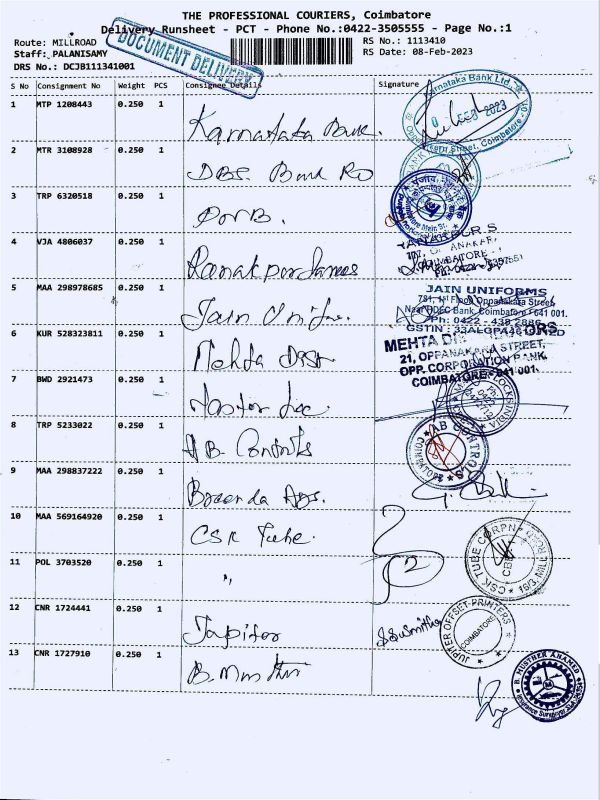 THE PROFESSIONAL COURIERS, Coimbatore
Delivery Runsheet - PCT - Phone No.:0422-3505555 - Page No.:1
Route: MILLROAD
RS No.: 1113410
Staff: PALANISAMY
RS Date: 08-Feb-2023
DRS No.: DCJB111341001
DOCUMENT DELIVERY
S No Consignment No Weight PCS Consignee Details Signature
1 MTP 1208443 0.250 1 Karnataka Bank.
Karnataka Bank Ltd.
2023
Street, Coimbatore
2 MTR 3108928 0.250 1 DBS Bank RO
BANK
3 TRP 6320518 0.250 1
4 VJA 4806037 0.250 1 Ranakpur
COIMBATORE
5 MAA 298978685 0.250 1 Jain
JAIN UNIFORMS
781, 1st Floor, Oppanakara Street,
Near HDFC Bank, Coimbatore - 641 001.
Ph: 0422 - 438 2886
6 KUR 528323811 0.250 1 Mehta Dist
MEHTA
21, OPPANAKARA STREET,
OPP. CORPORATION BANK,
COIMBATORE - 641 001.
7 BWD 2921473 0.250 1
8 TRP 5233022 0.250 1 AB Controls
AB CONTROLS
COIMBATORE
9 MAA 298837222 0.250 1
10 MAA 569164920 0.250 1 CSK Tube.
11 POL 3703520 0.250 1 "
CSK TUBE CORPN
CBE
12 CNR 1724441 0.250 1 Jupiter
S.Susmitha
JUPITER OFFSET-PRINTERS
COIMBATORE
13 CNR 1727910 0.250 1 B. Musthir
B. MUSTHER AHAMED
Insurance Surveyor